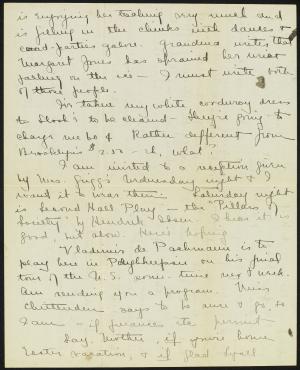 is enjoying her teaching very much and
is filling in the chinks with dances &
card-parties galore. Grandma writes that
Margaret Jones has sprained her wrist
falling on the ice - I must write both
of those people.
I've taken my white corduroy dress
to to be cleaned - They're going to
charge me 60¢. Rather different from
Brooklyn's $2.50 - eh, what?
I am invited to a reception given
by Mrs. Griggs Wednesday night &
Saturday night
is Second Hall Play - the "Pillars of
Society" by Hendrik Ibsen. I hear it is
good but slow. Here's hoping.
Vladimir de Pachmann is to
play here in Poughkeepsie on his final
tour of the U.S. some-time next week.
Am sending you a program. Miss
Chittenden says to be sure & go, so
I am - if finances etc permit.
Say, Mother, if you're home
Easter vacation, & if Glad